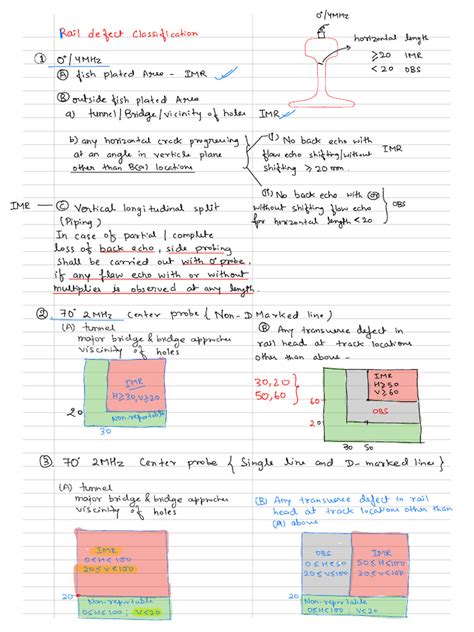 Rail defect Classification
0°/4MHz
horizontal length
≥20 IMR
< 20 OBS
① 0°/4MHz
Ⓐ fish plated Area - IMR
Ⓑ outside fish plated Area
a) tunnel/Bridge/vicinity of holes IMR
b) any horizontal crack progressing
at an angle in verticle plane
other than B(a) locations
(i) No back echo with
flow echo shifting/without
shifting ≥ 20 mm
IMR
(ii) No back echo with OR
without shifting flow echo
for horizontal length < 20
OBS
IMR — Ⓒ Vertical longitudinal split
(Piping)
In case of partial / complete
loss of back echo, side probing
shall be carried out with 0° probe,
if any flaw echo with or without
multiplies is observed at any length.
② 70° 2MHz center probe { Non-D Marked line }
(A) tunnel
major bridge & bridge approches
viscinity of holes
IMR
H≥30, V≥20
Non-reportable
20
30
(B) Any transverse defect in
rail head at track locations
other than above -
30, 20
50, 60
IMR
H≥50
V≥60
OBS
60
20
30 50
③ 70° 2MHz Center probe { Single line and D-marked line }
(A) tunnel
major bridge & bridge approches
viscinity of holes
IMR
0≤H≤100
20≤V≤100
20
Non-reportable
0≤H≤100 V<20
(B) Any transverse defect in rail
head at track locations other than
(a) above
OBS
0≤H<50
20≤V≤100
IMR
50≤H≤100
20≤V≤100
20
Non-reportable
0≤H≤100, V<20